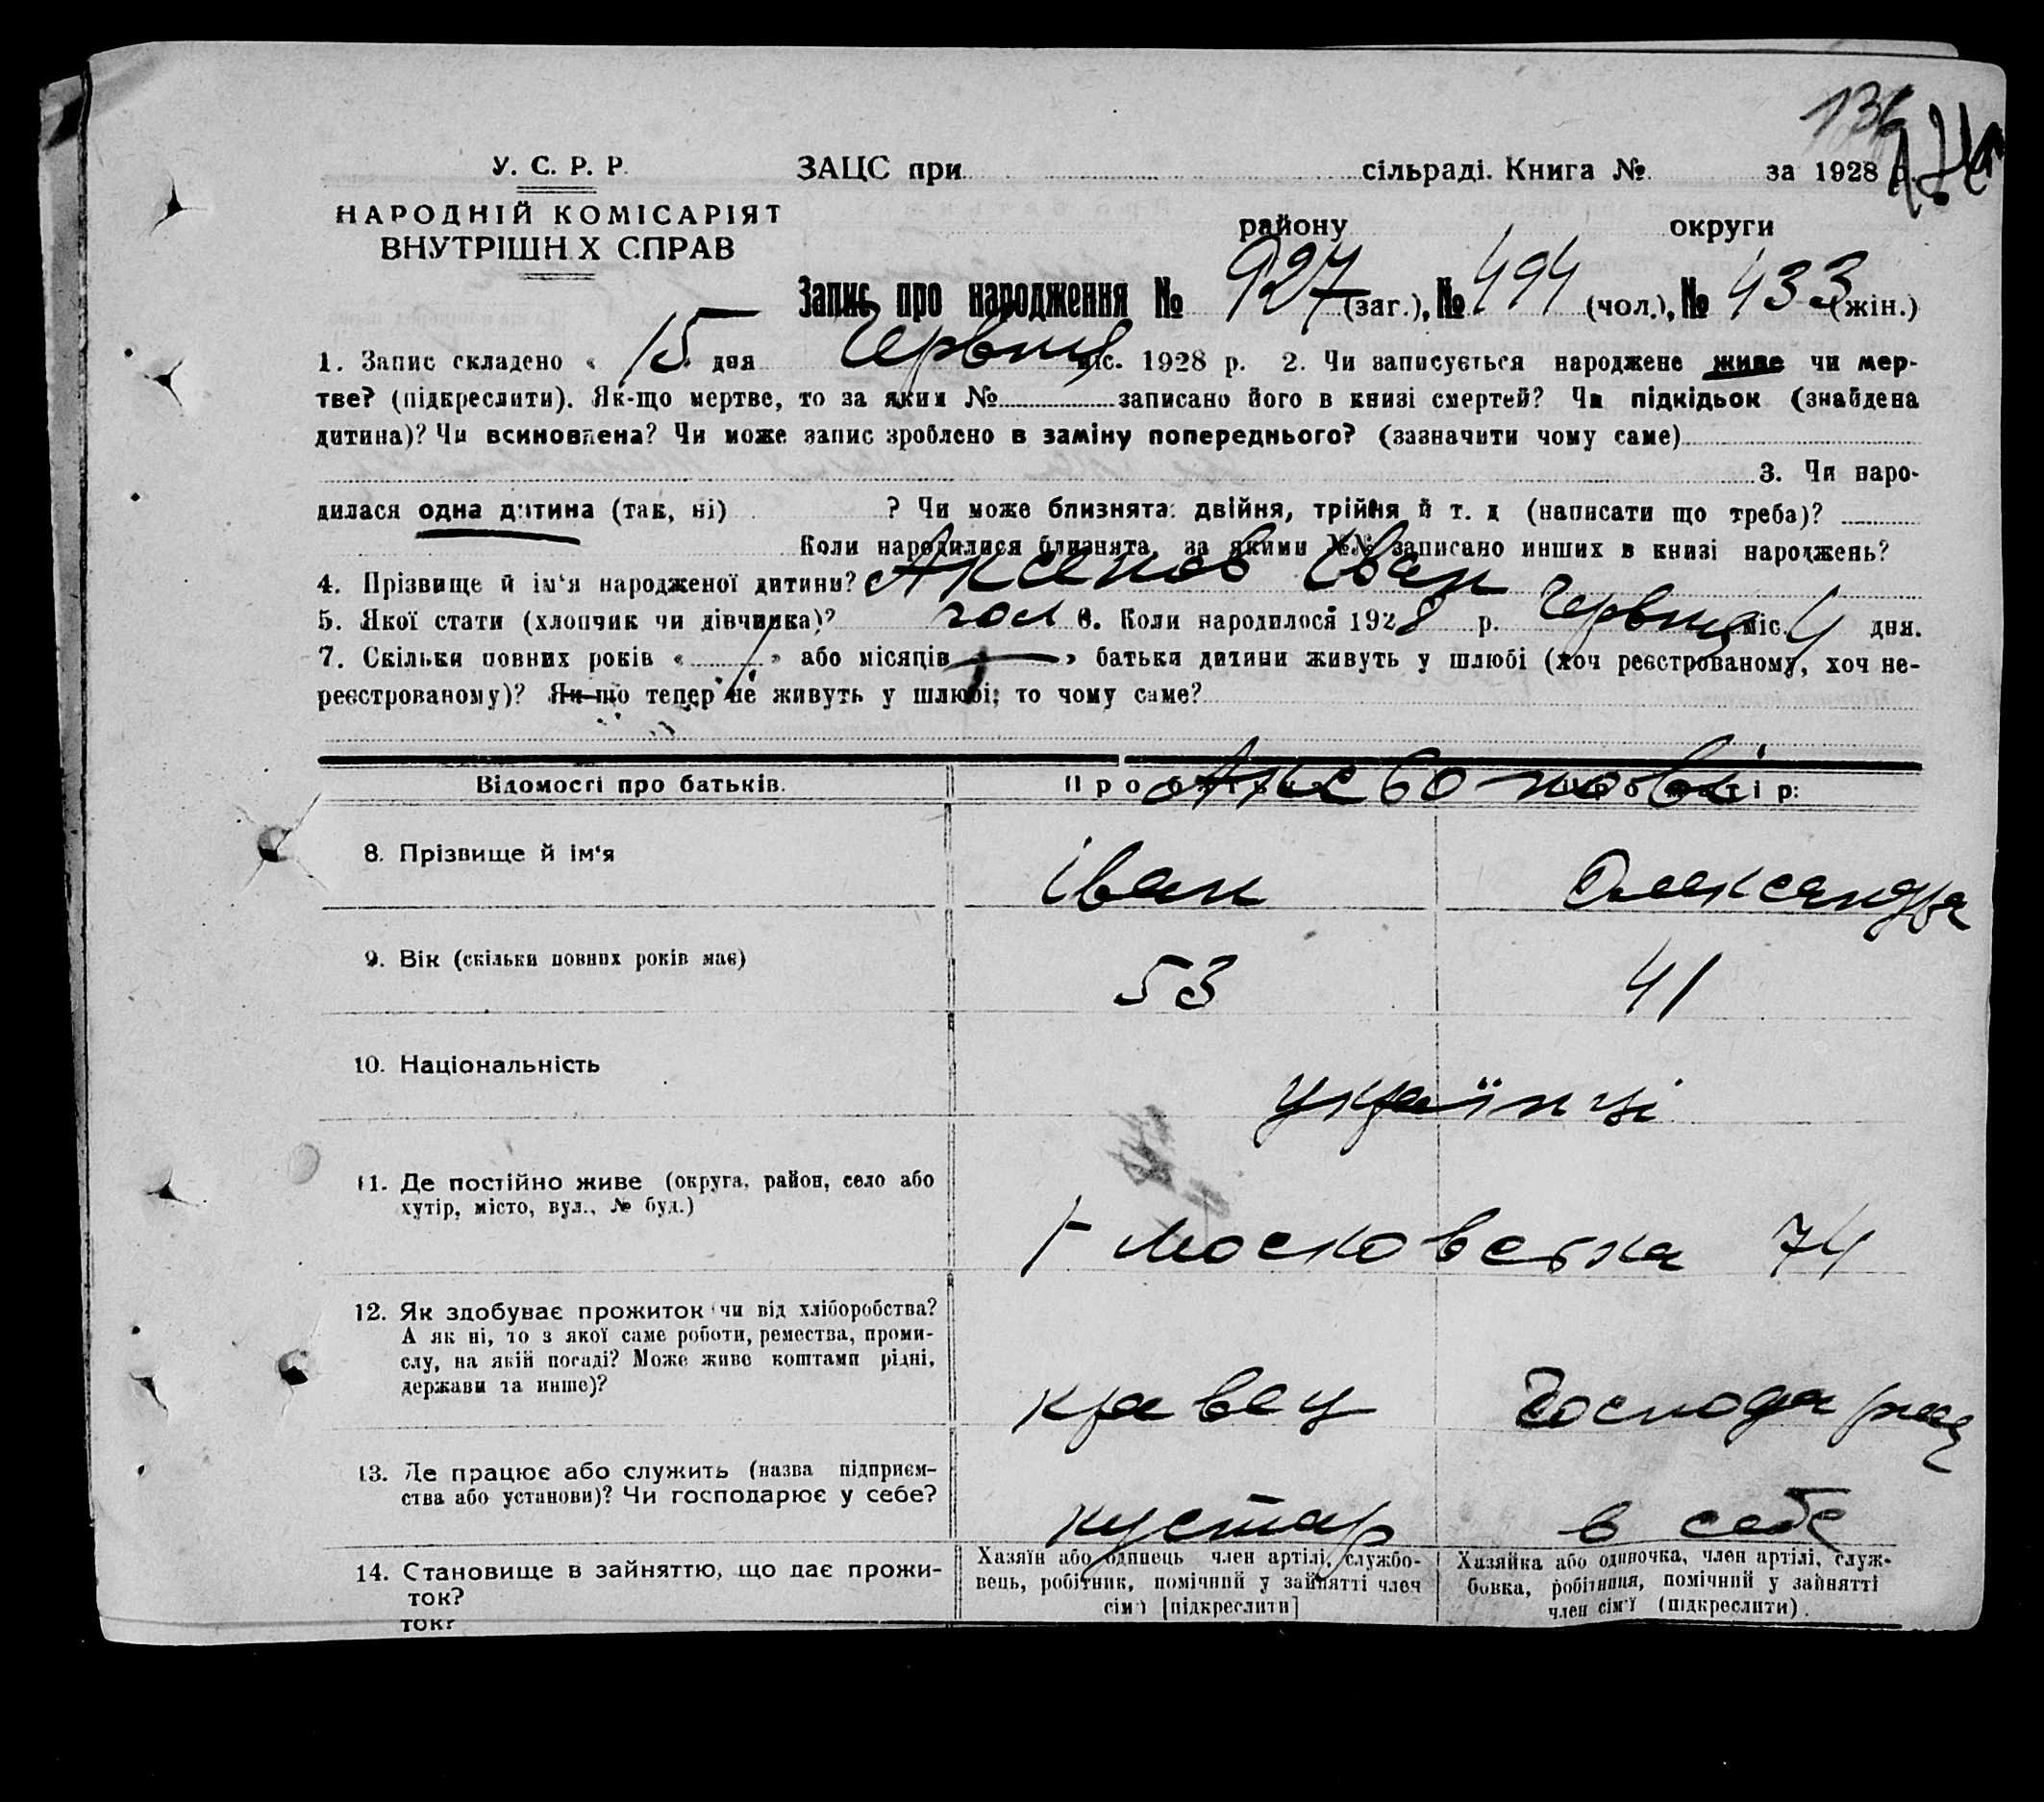 136
У. С. Р. Р.
ЗАЦС при сільраді. Книга № за 1928 р.
НАРОДНІЙ КОМІСАРІЯТ
ВНУТРІШН Х СПРАВ
району округи
Запис про народження № 927 (заг.), № 494 (чол.), № 433 (жін.)
1. Запис складено « 15 » дня Червня міс. 1928 р. 2. Чи записується народжене живе чи мер-
тве? (підкреслити). Як-що мертве, то за яким № записано його в книзі смертей? Чи підкідьок (знайдена
дитина)? Чи всиновлена? Чи може запис зроблено в заміну попереднього? (зазначити чому саме)
3. Чи наро-
дилася одна дитина (так, ні) ? Чи може близнята: двійня, трійня й т. д (написати що треба)?
Коли народилися близнята, за якими №№ записано инших в книзі народжень?
4. Прізвище й ім'я народженої дитини? Іван
5. Якої стати (хлопчик чи дівчинка)? чол 6. Коли народилося 1928 р. Червня міс. 4 дня.
7. Скільки повних років « » або місяців » батьки дитини живуть у шлюбі (хоч реєстрованому, хоч не-
реєстрованому)? Як-що тепер не живуть у шлюбі; то чому саме?
Відомості про батьків.
8. Прізвище й ім'я Іван Олександра
9. Вік (скільки повних років має) 53 41
10. Національність українці
11. Де постійно живе (округа, район, село або
хутір, місто, вул., № буд.)
Московська 74
12. Як здобуває прожиток чи від хліборобства?
А як ні, то з якої саме роботи, ремества, проми-
слу, на якій посаді? Може живе коштами рідні,
держави та инше)?
кравец Господарка
13. Де працює або служить (назва підприєм-
ства або установи)? Чи господарює у себе?
кустар в себе
14. Становище в зайняттю, що дає прожи-
ток?
Хазяїн або одинець член артілі, службо-
вець, робітник, помічний у зайнятті член
сім'ї [підкреслити]
Хазяйка або одиночка, член артілі, служ-
бовка, робітниця, помічний у зайнятті
член сім'ї (підкреслити).
ток?